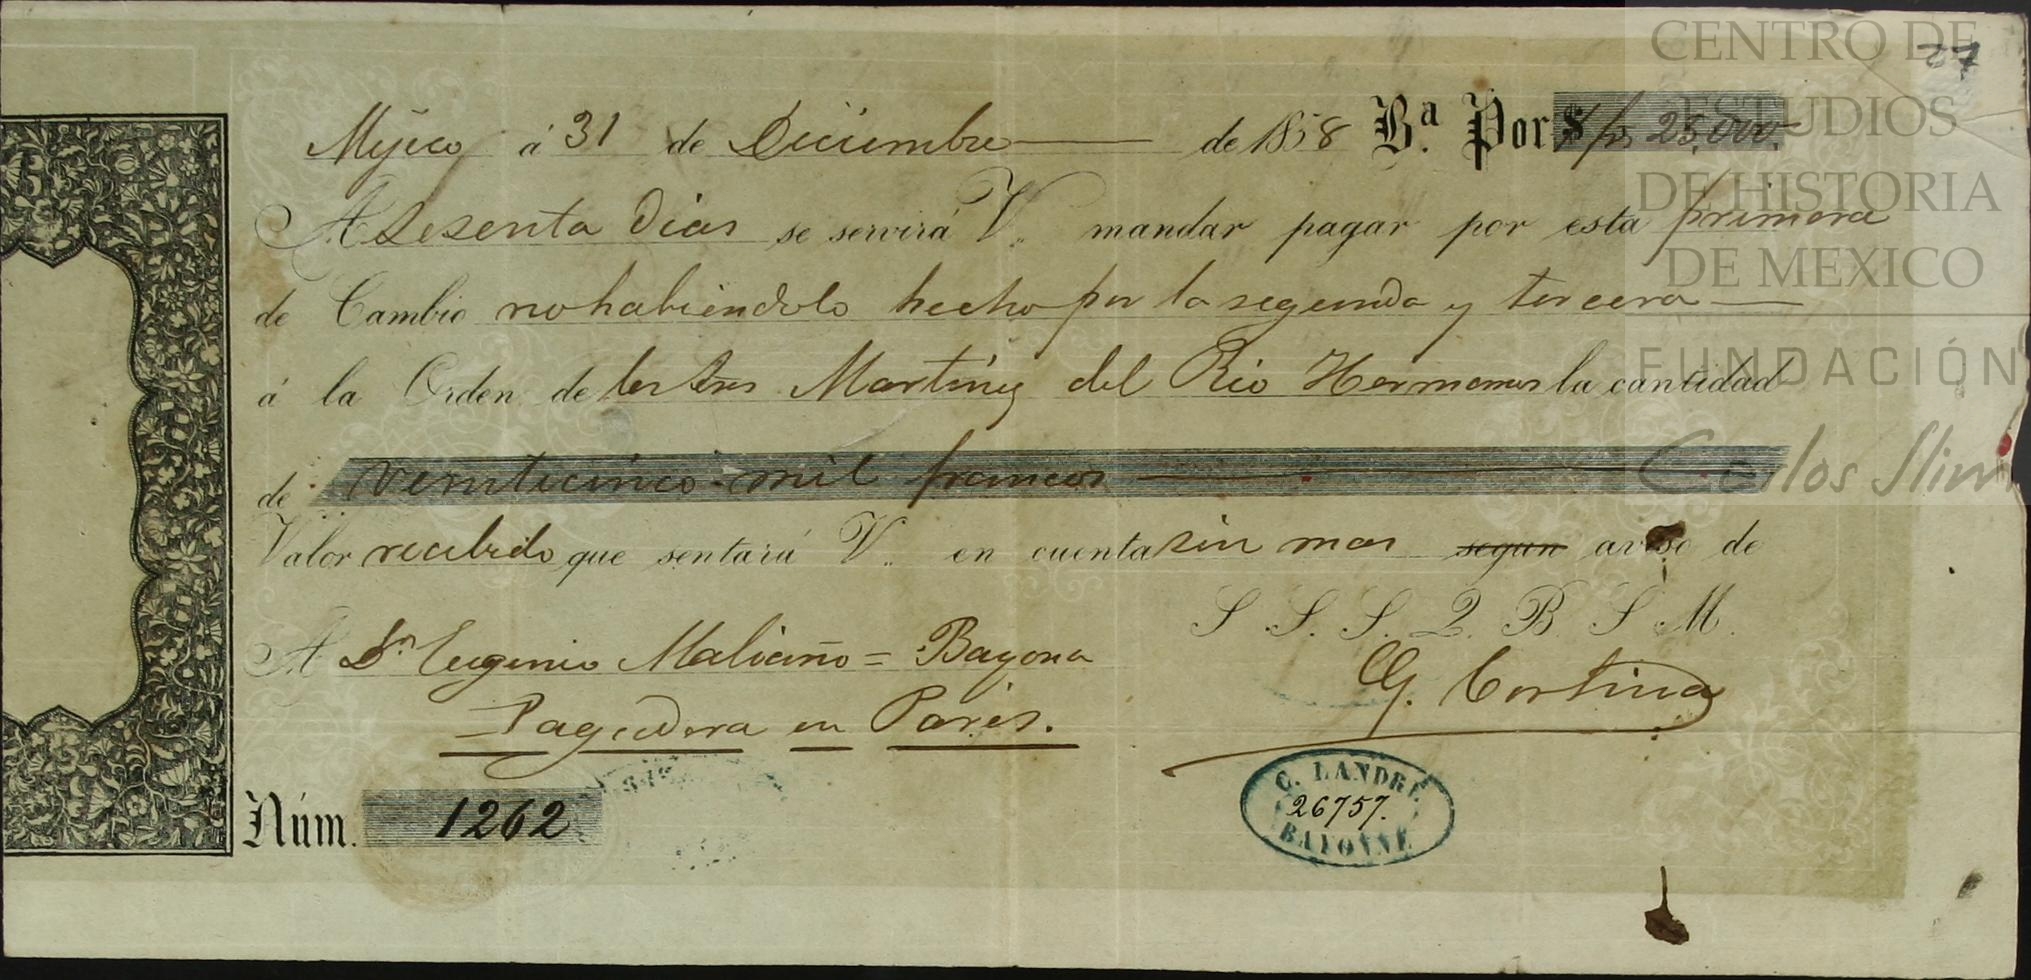 27
CENTRO DE
ESTUDIOS
DE HISTORIA
DE MEXICO
FUNDACIÓN
Carlos Slim
Mejico á 31 de Diciembre de 1858 B.ª Por $ frs 25,000
A sesenta dias se servirá V. mandar pagar por esta primera
de Cambio no habiendolo hecho por la segunda y tercera
á la Orden de los Sres Martinez del Rio Hermanos la cantidad
de veinticinco mil francos
Valor recibido que sentará V. en cuenta sin mas segun aviso de
S. S. S. Q. B. S. M.
A Dn Eugenio Maliaño = Bayona
G. Cortina
Pagadera en Paris.
Núm. 1262
C. LANDRÉ
26757.
BAYONNE